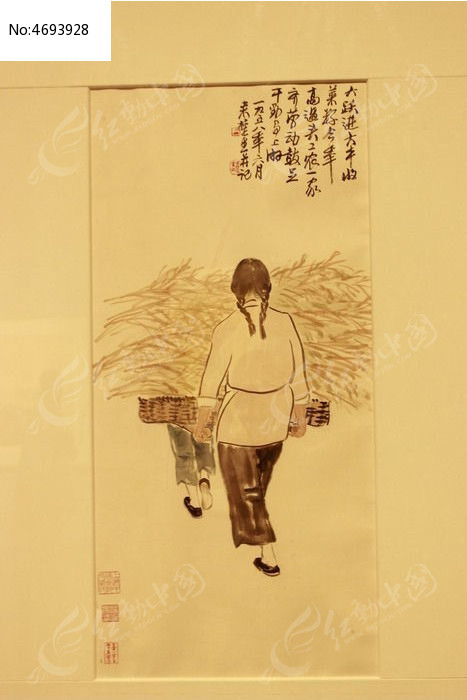 No:4693928
大跃进大丰收
菜籽今年
高过头工农一家
齐劳动鼓足
干劲争上游
一九五八年六月
来楚生并记
红动中国
红动中国
红动中国
红动中国
红动中国
红动中国